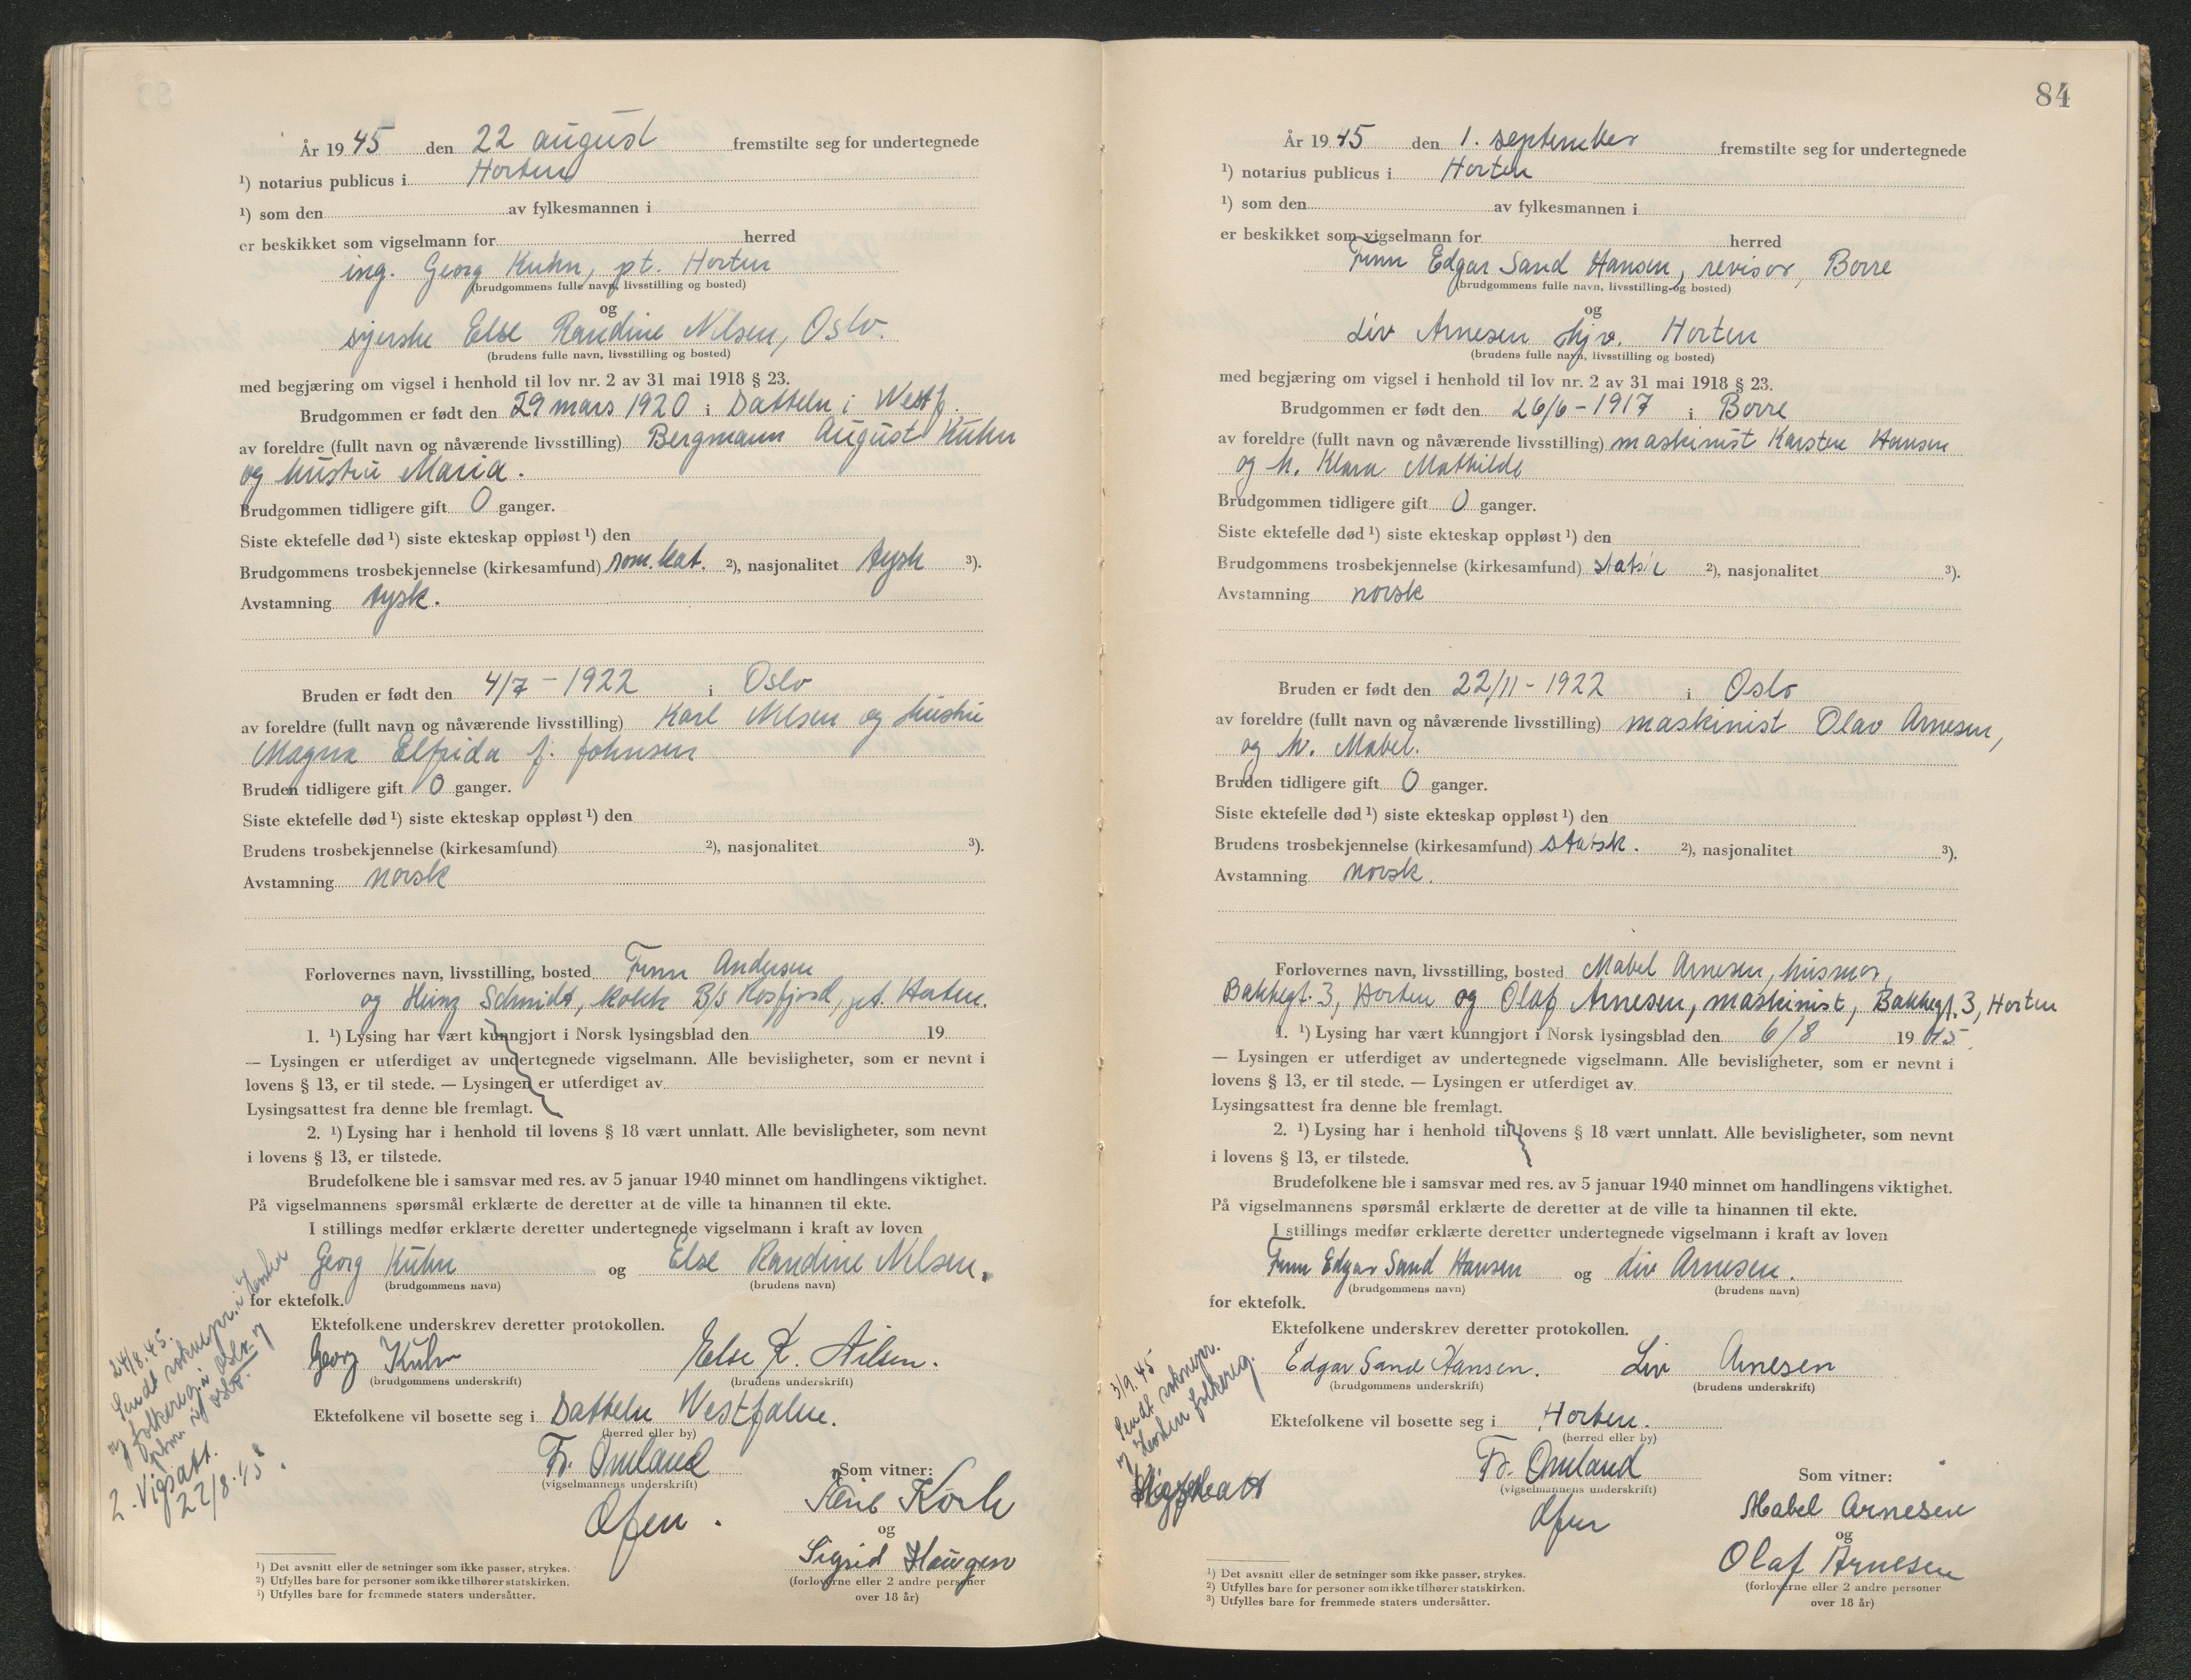 År 1945 den 22 august fremstilte seg for undertegnede
¹) notarius publicus i Horten
¹) som den av fylkesmannen i
er beskikket som vigselmann for herred
ing. Georg Kuhn, pt. Horten
(brudgommens fulle navn, livsstilling og bosted)
og
syerske Else Randine Nilsen, Oslo.
(brudens fulle navn, livsstilling og bosted)
med begjæring om vigsel i henhold til lov nr. 2 av 31 mai 1918 § 23.
Brudgommen er født den 29 mars 1920 i Datteln i Westf.
av foreldre (fullt navn og nåværende livsstilling) Bergmann August Kuhn
og hustru Maria.
Brudgommen tidligere gift 0 ganger.
Siste ektefelle død ¹) siste ekteskap oppløst ¹) den
Brudgommens trosbekjennelse (kirkesamfund) rom. kat. ²), nasjonalitet tysk ³).
Avstamning tysk.
Bruden er født den 4/7 - 1922 i Oslo
av foreldre (fullt navn og nåværende livsstilling) Karl Nilsen og hustru
Magna Elfrida f. Johnsen
Bruden tidligere gift 0 ganger.
Siste ektefelle død ¹) siste ekteskap oppløst ¹) den
Brudens trosbekjennelse (kirkesamfund) ²), nasjonalitet ³).
Avstamning norsk
Forlovernes navn, livsstilling, bosted Finn Andersen
og Heinz Schmidt, kokk B/s Kosfjord, pt. Horten.
1. ¹) Lysing har vært kunngjort i Norsk lysingsblad den 19
— Lysingen er utferdiget av undertegnede vigselmann. Alle bevisligheter, som er nevnt i
lovens § 13, er til stede. — Lysingen er utferdiget av
Lysingsattest fra denne ble fremlagt.
2. ¹) Lysing har i henhold til lovens § 18 vært unnlatt. Alle bevisligheter, som nevnt
i lovens § 13, er tilstede.
Brudefolkene ble i samsvar med res. av 5 januar 1940 minnet om handlingens viktighet.
På vigselmannens spørsmål erklærte de deretter at de ville ta hinannen til ekte.
I stillings medfør erklærte deretter undertegnede vigselmann i kraft av loven
Georg Kuhn og Else Randine Nilsen.
(brudgommens navn) (brudens navn)
for ektefolk.
Ektefolkene underskrev deretter protokollen.
Georg Kuhn Else R. Nilsen.
(brudgommens underskrift) (brudens underskrift)
Ektefolkene vil bosette seg i Datteln Westfalen.
(herred eller by)
Fr. Omland
(vigselmannens underskrift)
Ofen.
Som vitner:
Koch
og
Sigrid Haugen
(forloverne eller 2 andre personer
over 18 år)
24/8.45.
Sendt soknepr. i Horten
og folkereg. i Oslo og
2. Vigsatt.
22/8.45.
¹) Det avsnitt eller de setninger som ikke passer, strykes.
²) Utfylles bare for personer som ikke tilhører statskirken.
³) Utfylles bare for fremmede staters undersåtter.
84
År 1945 den 1. september fremstilte seg for undertegnede
¹) notarius publicus i Horten
¹) som den av fylkesmannen i
er beskikket som vigselmann for herred
Finn Edgar Sand Hansen, revisor, Borre
(brudgommens fulle navn, livsstilling og bosted)
og
Liv Arnesen hjv. Horten
(brudens fulle navn, livsstilling og bosted)
med begjæring om vigsel i henhold til lov nr. 2 av 31 mai 1918 § 23.
Brudgommen er født den 26/6 - 1917 i Borre
av foreldre (fullt navn og nåværende livsstilling) maskinist Karsten Hansen
og h. Klara Mathilde
Brudgommen tidligere gift 0 ganger.
Siste ektefelle død ¹) siste ekteskap oppløst ¹) den
Brudgommens trosbekjennelse (kirkesamfund) ²), nasjonalitet ³).
Avstamning norsk
Bruden er født den 22/11 - 1922 i Oslo
av foreldre (fullt navn og nåværende livsstilling) maskinist Olav Arnesen,
og h. Mabel.
Bruden tidligere gift 0 ganger.
Siste ektefelle død ¹) siste ekteskap oppløst ¹) den
Brudens trosbekjennelse (kirkesamfund) statsk. ²), nasjonalitet ³).
Avstamning norsk.
Forlovernes navn, livsstilling, bosted Mabel Arnesen, husmor,
Bakkegt. 3, Horten og Olaf Arnesen, maskinist, Bakkegt. 3, Horten
1. ¹) Lysing har vært kunngjort i Norsk lysingsblad den 6/8 1945.
— Lysingen er utferdiget av undertegnede vigselmann. Alle bevisligheter, som er nevnt i
lovens § 13, er til stede. — Lysingen er utferdiget av
Lysingsattest fra denne ble fremlagt.
2. ¹) Lysing har i henhold til lovens § 18 vært unnlatt. Alle bevisligheter, som nevnt
i lovens § 13, er tilstede.
Brudefolkene ble i samsvar med res. av 5 januar 1940 minnet om handlingens viktighet.
På vigselmannens spørsmål erklærte de deretter at de ville ta hinannen til ekte.
I stillings medfør erklærte deretter undertegnede vigselmann i kraft av loven
Finn Edgar Sand Hansen og Liv Arnesen.
(brudgommens navn) (brudens navn)
for ektefolk.
Ektefolkene underskrev deretter protokollen.
Edgar Sand Hansen. Liv Arnesen
(brudgommens underskrift) (brudens underskrift)
Ektefolkene vil bosette seg i Horten.
(herred eller by)
Fr. Omland
(vigselmannens underskrift)
Ofen
Som vitner:
Mabel Arnesen
og
Olaf Arnesen
(forloverne eller 2 andre personer
over 18 år)
3/9.45
Sendt soknepr.
og Horten folkereg.
¹) Det avsnitt eller de setninger som ikke passer, strykes.
²) Utfylles bare for personer som ikke tilhører statskirken.
³) Utfylles bare for fremmede staters undersåtter.